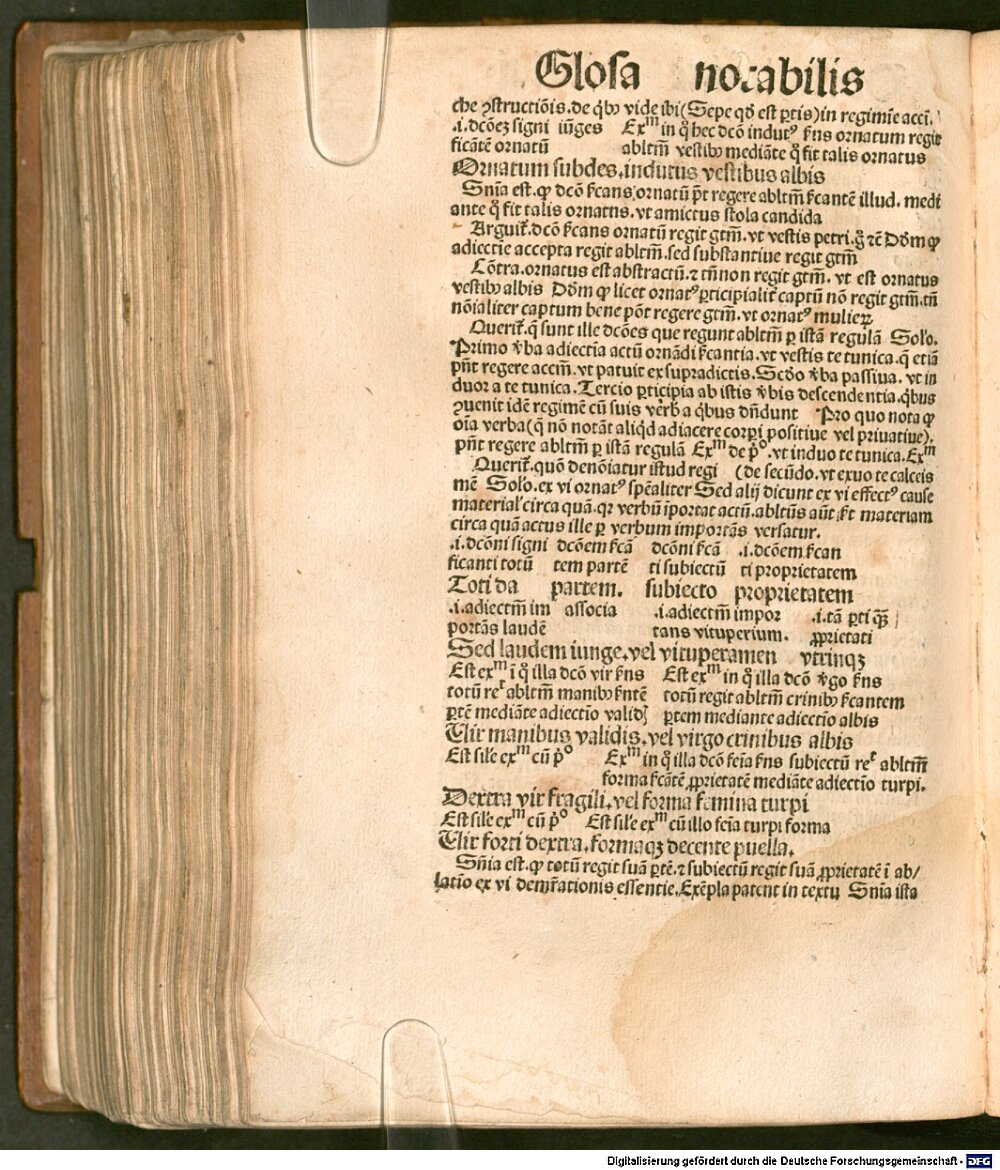 Glosa notabilis
che ꝯstructiōis. de qb₉ vide ibi (Sepe qđ est ꝑtis) in regimīe acci.
.i. dcōeꝫ signi iūges Exᵐ in q̊ hec dcō indutꝰ ẜns ornatum regit
ficātē ornatū abltm̄ vestib₉ mediāte q̊ fit talis ornatus
Ornatum subdes. indutus vestibus albis
Snīa est. ꝙ dcō ẜcans ornatū pt̄ regere abltm̄ ẜcantē illud. medi
ante q̊ fit talis ornatus. vt amictus stola candida
Arguit̄. dcō ẜcans ornatū regit gtm̄. vt vestis petri. g̊ ⁊c̄ Dōm ꝙ
adiectie accepta regit abltm̄. sed substantiue regit gtm̄
Cōtra. ornatus est abstractū. ⁊ tn̄ non regit gtm̄. vt est ornatus
vestib₉ albis Dōm ꝙ licet ornatꝰ ꝑticipialit̄ captū nō regit gtm̄. tn̄
nōialiter captum bene pōt regere gtm̄. vt ornatꝰ mulieꝝ
Querit̄. q̄ sunt ille dcōes que regunt abltm̄ ꝑ istā regulā Solo.
Primo v̄ba adiectia actū ornādi ẜcantia. vt vestis te tunica. q̄ etiā
pn̄t regere accm̄. vt patuit ex supradictis. Scdo v̄ba passiua. vt in
duor a te tunica. Tercio ꝑticipia ab istis v̄bis descendentia. qbus
ꝯuenit idē regimē cū suis verb a qbus dn̄dunt Pro quo nota ꝙ
oīa verba (q̄ nō notāt aliqd adiacere corpi positiue vel priuatiue).
pn̄t regere abltm̄ ꝑ istā regulā Exᵐ de pͦ. vt induo te tunica. Exᵐ
Querit̄. quō denōiatur istud regi (de secūdo. vt exuo te calceis
mē Solo. ex vi ornatꝰ spēaliter Sed alij dicunt ex vi effectꝰ cause
material' circa quā. qꝛ verbū īportat actū. abltūs aūt ẜt materiam
circa quā actus ille ꝑ verbum importās versatur.
.i. dcōni signi dcōem ẜcā dcōni ẜcā .i. dcōem ẜcan
ficanti totū tem partē ti subiectū ti proprietatem
Toti da partem. subiecto proprietatem
.i. adiectm̄ im associa .i. adiectm̄ impor .i. tā ꝑti qꝫ̄
portās laudē tans vituperium. ꝓprietati
Sed laudem iunge. vel vituperamen vtrinqꝫ
Est exᵐ ī q̊ illa dcō vir ẜns Est exᵐ in q̊ illa dcō v̄go ẜns
totū reᵗ abltm̄ manib₉ ẜntē totū regit abltm̄ crinib₉ ẜcantem
ꝑtē mediāte adiectio valid ꝑtem mediante adiectio albis
Vir manibus validis. vel virgo crinibus albis
Est sil'e exᵐ cū pͦ Exᵐ in q̊ illa dcō feīa ẜns subiectū reᵗ abltm̄
forma ẜcātē ꝓprietatē mediāte adiectio turpi.
Dextra vir fragili. vel forma femina turpi
Est sil'e exᵐ cū pͦ Est sil'e exᵐ cū illo feīa turpi forma
Vir forti dextra. formaqꝫ decente puella.
Sn̄ia est. ꝙ totū regit suā ꝑtē. ⁊ subiectū regit suā ꝓprietatē ī ab/
latio ex vi demr̄ationis essentie. Exēpla patent in textu Snīa ista
Digitalisierung gefördert durch die Deutsche Forschungsgemeinschaft - DFG